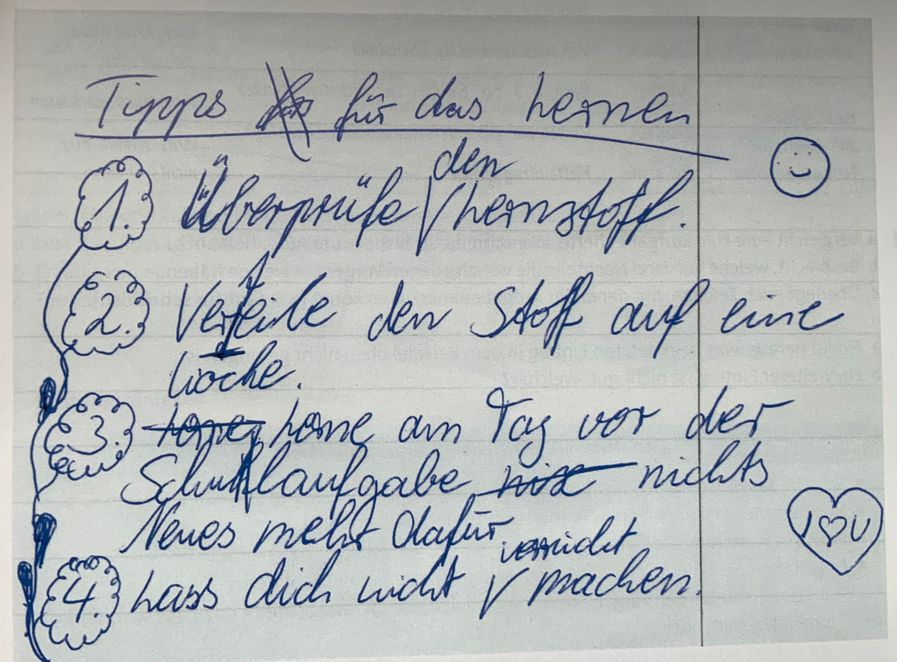 Tipps für das Lernen
1. Überprüfe den Lernstoff.
2. Verteile den Stoff auf eine
Woche.
3. Lerne am Tag vor der
Schulaufgabe nichts
Neues mehr dafür
4. Lass dich nicht verrückt machen.
I ♡ U